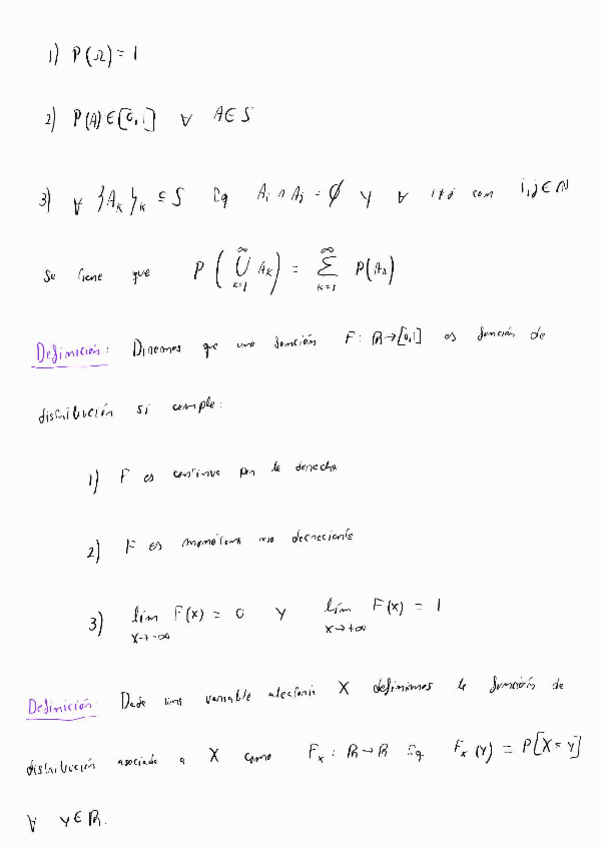 1) P(Ω) = 1
2) P(A) ∈ [0,1] ∀ A ∈ S
3) ∀ {A_k}_k ⊆ S tq A_i ∩ A_j = ∅ y ∀ i≠j con i,j ∈ N
Se tiene que P ( ⋃_{k=1}^{∞} A_k ) = ∑_{k=1}^{∞} P(A_k)
Definición: Diremos que una función F: R → [0,1] es función de
distribución si cumple:
1) F es continua por la derecha
2) F es monótona no decreciente
3) lim_{x→-∞} F(x) = 0 y lim_{x→+∞} F(x) = 1
Definición: Dada una variable aleatoria X definimos la función de
distribución asociada a X como F_x : R → R tq F_x(y) = P[X ≤ y]
∀ y ∈ R.